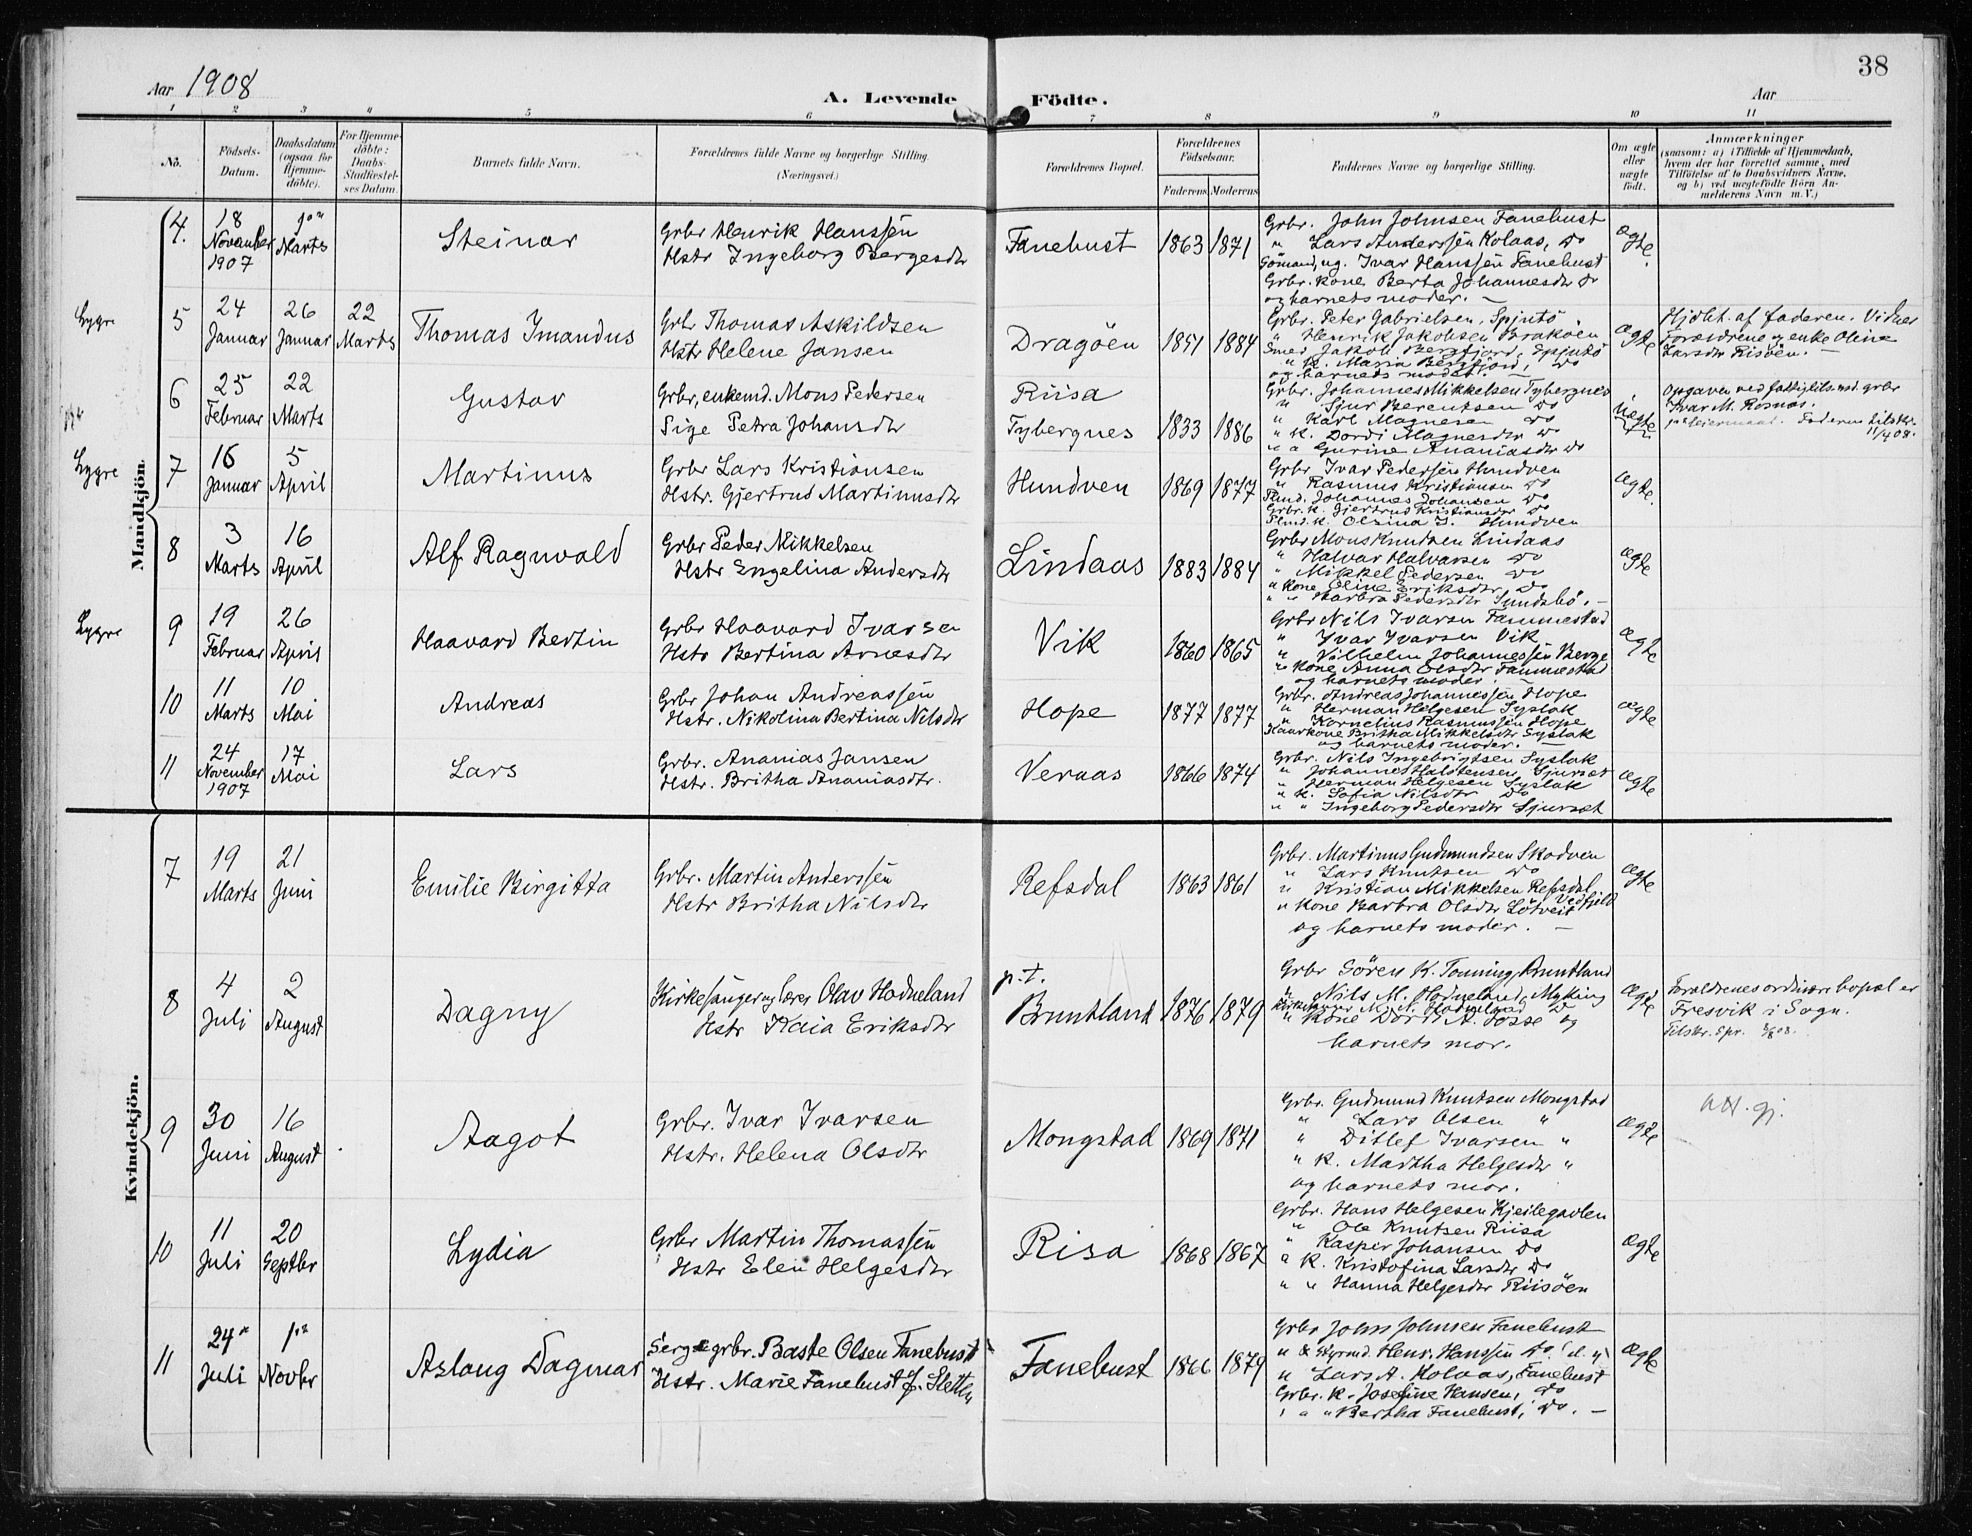 38
Aar 1908
A. Levende Födte.
Aar
1 2 3 4 5 6 7 8 9 10 11
No.
Födsels-Datum.
Daabsdatum (ogsaa for Hjemme-döbte).
For Hjemme-döbte: Daabs-Stadfæstel-ses Datum.
Barnets fulde Navn.
Forældrenes fulde Navne og borgerlige Stilling. (Næringsvei.)
Forældrenes Bopæl.
Forældrenes Födselsaar.
Faderens. Moderens.
Faddernes Navne og borgerlige Stilling.
Om ægte eller uægte födt.
Anmærkninger
(saasom: a) i Tilfælde af Hjemmedaab, hvem der har forrettet samme, med Tilföielse af to Daabsvidners Navne, og b) ved uægtefödte Börn Anmelderens Navn m.V.)
Mandkjön.
4. 18 November 1907 1ste Marts
Steinar
Grbr Henrik Hanssen
Hstr Ingeborg Bergesdtr
Fanebust 1863 1871
Grbr. John Johnsen Fanebust
" Lars Anderssen Kolaas, Do
Sömand, ug. Ivar Hanssen Fanebust
Grbr. kone Berta Johannesdtr Do
og barnets moder. —
ægte.
Lygre
5 24 Januar 26 Januar 22 Marts
Thomas Imandus
Grbr Thomas Askildsen
Hstr Helene Jansen
Dragöen 1851 1884
Grbr. Peter Gabrielsen, Spjutö
" Henrik Jakobsen Braköen
Smed Jakob Bergfjord, Spjutö
" k. Maria Bergfjord, Do
og barnets moder. —
ægte
Hjdbt. af faderen. Vidner
Forældrene og enke Oline
Larsdtr Risöen. —
6 25 Februar 22 Marts
Gustav
Grbr, enkemd. Mons Pedersen
Pige Petra Johansdtr
Riisa
Tybergnes 1833 1886
Grbr. Johannes Mikkelsen Tybergnes
" Sjur Berentsen Do
" Karl Magnesen Do
" k. Dordi Magnesdtr Do
" " Gurine Ananiasdtr Do
Uægte
Opgaven ved fattigtilsmd. grbr
Ivar M. Rosnæs.
11/4 08.
Lygre
7 16 Januar 5 April
Martinus
Grbr Lars Kristiansen
Hstr. Gjertrud Martinusdtr
Hundven 1869 1877
Grbr Ivar Pedersen Hundven
" Rasmus Kristiansen Do
Plmd. Johannes Johansen Do
Grbr. k. Gjertrud Kristiansdtr Do
Plmd. k. Olsina I. Hundven
ægte.
8 3 Marts 16 April
Alf Ragnvald
Grbr Peder Mikkelsen
Hstr Engelina Andersdtr
Lindaas 1883 1884
Grbr Mons Knutsen Lindaas
" Halvar Halvarsen Do
" Mikkel Pedersen Do
" kone Oline Eriksdtr Do
" " Barbra Pedersdtr Sundsbö. —
ægte
Lygre
9 19 Februar 26 April
Haavard Bertin
Grbr Haavard Ivarsen
Hstr Bertina Arnesdtr
Vik 1860 1865
Grbr Nils Ivarsen Fammestad
" Ivar Ivarsen Vik
" Vilhelm Johannessen Berge
" kone Anna Olsdtr Fammestad
og barnets moder —
ægte
10 11 Marts 10 Mai
Andreas
Grbr Johan Andreassen
Hstr. Nikolina Bertina Nilsdtr
Hope 1877 1877
Grbr. Andreas Johannessen Hope
" Herman Helgesen Syslak
" Kornelius Rasmussen Hope
Kaarkone Britha Mikkelsdtr Syslak
og barnets moder. —
ægte
11 24 November 1907 17 Mai
Lars
Grbr. Ananias Jansen
Hstr. Britha Ananiasdtr.
Veraas 1866 1874
Grbr. Nils Ingebrigtsen Syslak
" Johannes Halstensen Sjurset
" Herman Helgesen Syslak
" k. Sofia Nilsdtr Do
" " Ingeborg Pedersdtr Sjurset
ægte
Kvindekjön.
7 19 Marts 21 Juni
Emilie Birgitta
Grbr. Martin Anderssen
Hstr Britha Nilsdtr
Refsdal 1863 1861
Grbr. Martinus Gudmundsen Skodven
" Lars Knutsen Do
" Kristian Mikkelsen Refsdal
" kone Barbra Olsdtr Lötveit Vedfjeld
og barnets moder. —
ægte
8 4 Juli 2 August
Dagny
Kirkesanger og lærer Olav Hodneland
Hstr Kaia Eriksdtr
p.t.
Bruntland 1876 1879
Grbr Sören K. Tonning, Bruntland
" Nils M. Hodneland, Myking
M. N. Hodneland Do
" kone Dordi A. Fosse og
barnets mor.
ægte
Forældrenes ordinære bopæl er
Fresvik i Sogn.
Tilskr. Spr. 3/8 08.
9 30 Juni 16 August
Aagot
Grbr. Ivar Ivarsen
Hstr. Helena Olsdtr
Mongstad 1869 1871
Grbr. Gudmund Knutsen Mongstad
" Lars Olsen "
" Ditlef Ivarsen "
" k. Martha Helgesdtr "
og barnets mor.
ægte
att. gj.
10 11 Juli 20 Septbr
Lydia
Grbr Martin Thomassen
Hstr Elen Helgesdtr
Risa 1868 1867
Grbr. Hans Helgesen Kjeilegavlen
" Ole Knutsen Riisa
" Kasper Johansen Do
" k. Kristofina Larsdtr Do
" " Hanna Helgesdtr Riisöen
ægte
11 24de Juli 1ste Novbr
Aslaug Dagmar
Serg. & grbr. Baste Olsen Fanebust
Hstr. Marie Fanebust f. Sletten
Fanebust 1866 1879
Grbr John Johnsen Fanebust
" & Styrmd. Henr. Hanssen Do.
" Lars A. Kolaas, Fanebust
Grbr. k. Josefine Hansen, Do
" " Bertha Fanebust, Do. —
ægte